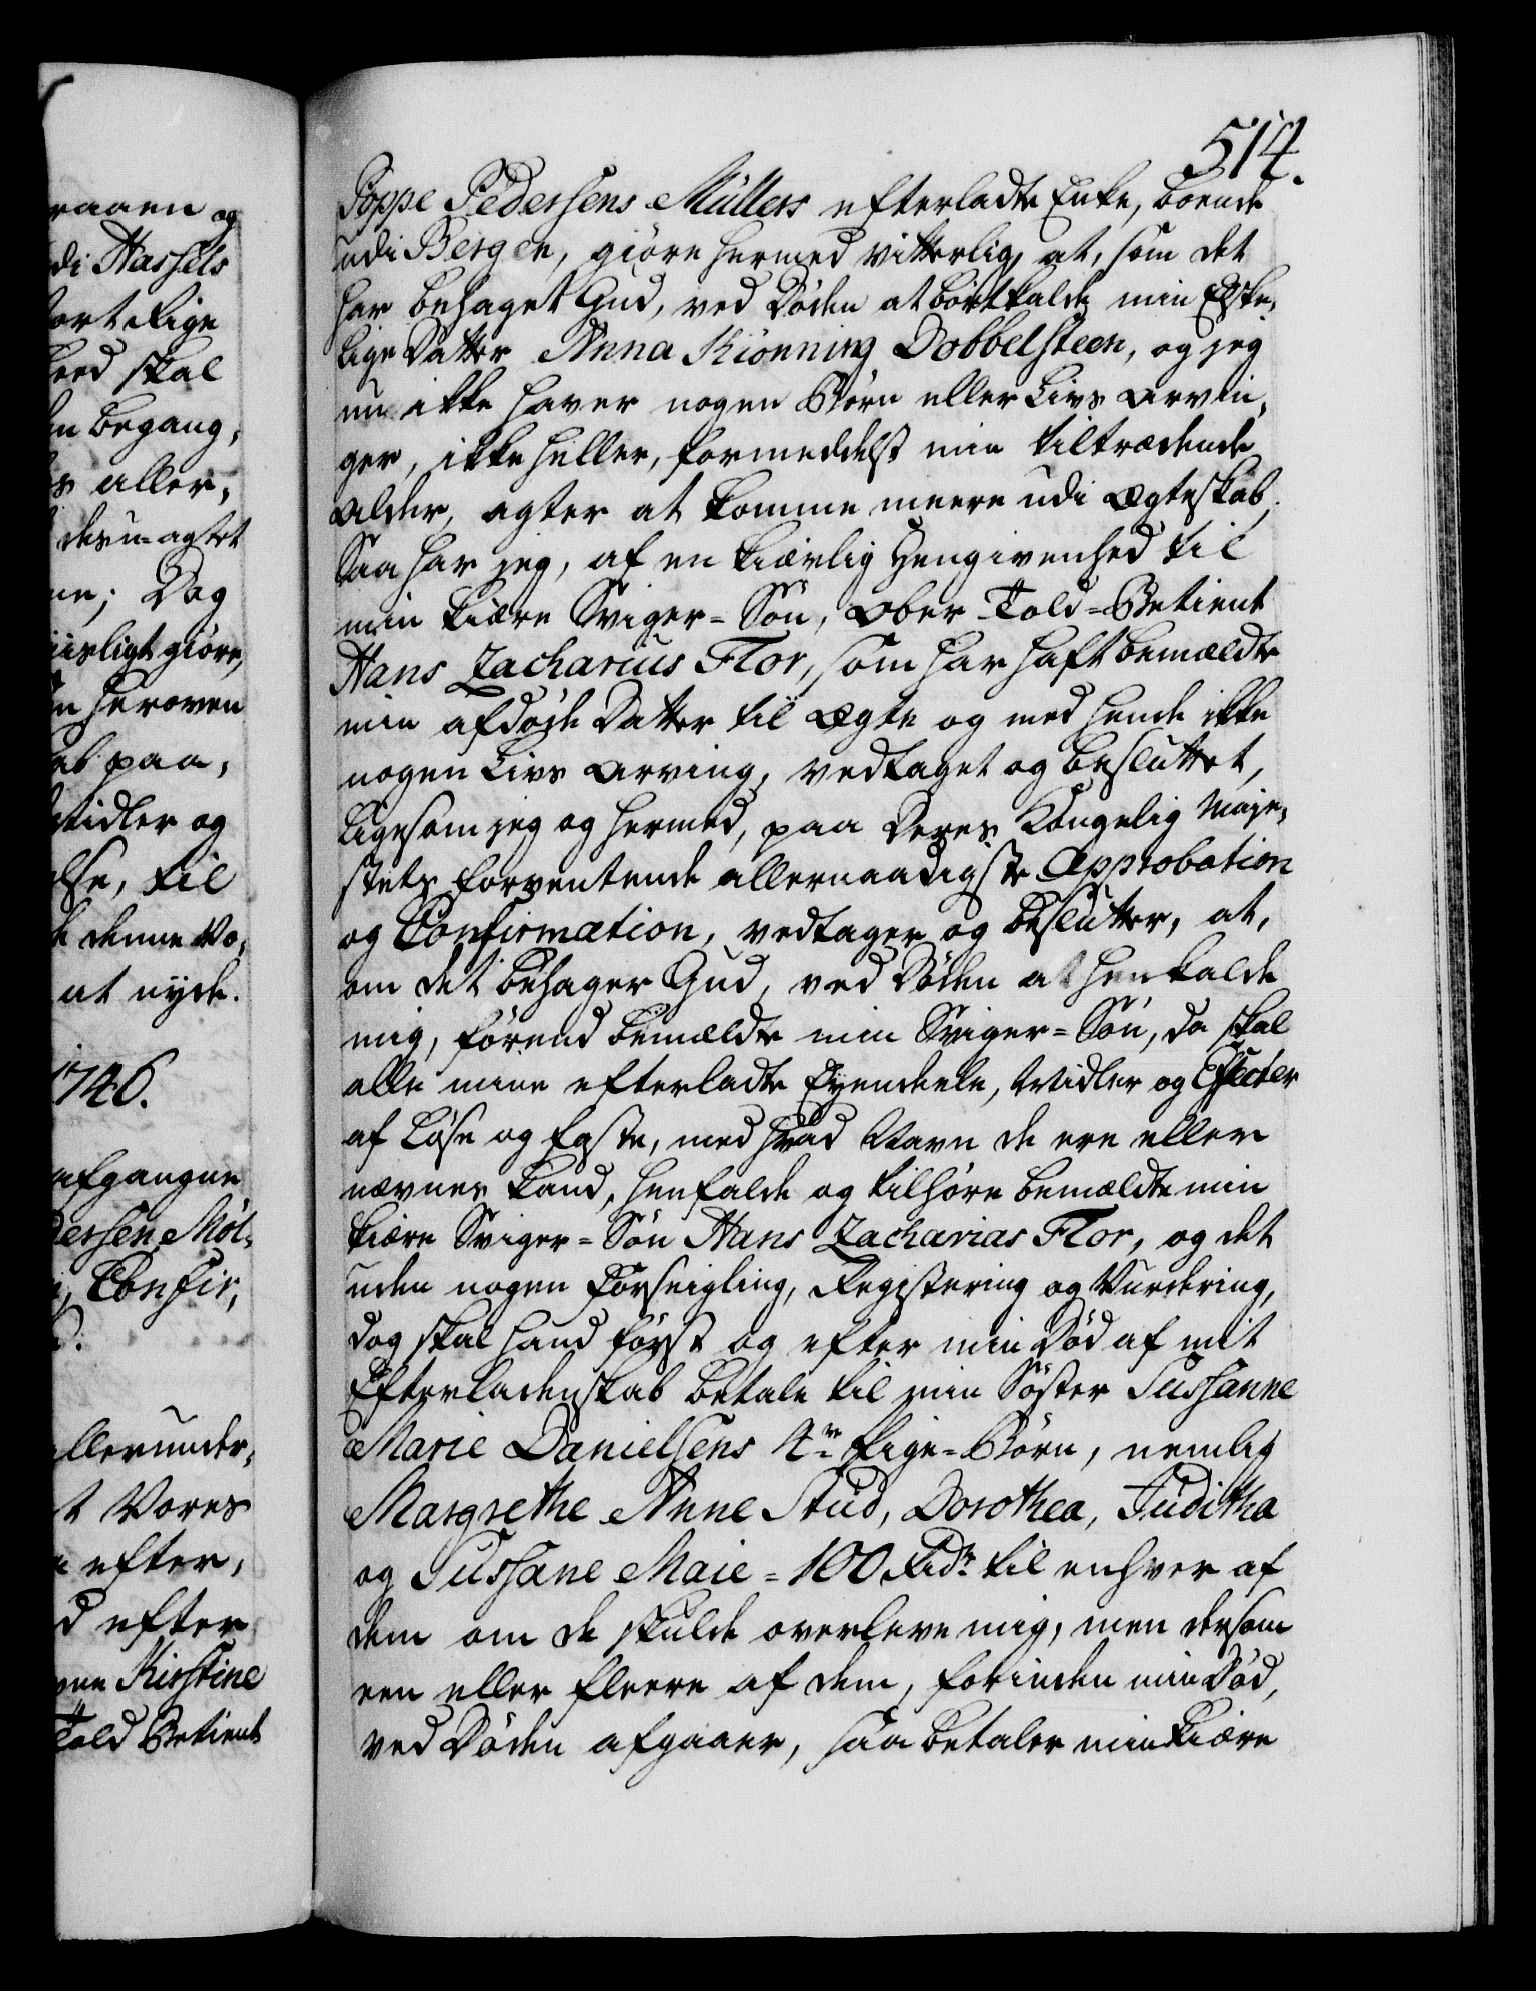 raaen og
di Hassels
fort Lige
heed skal
en begang,
s aller,
desu-agtet
ne; Dog
iisligt giøre,
n heroven
ab paa,
Midler og
else, til
denne Vo,
at nyde.
1746.
afgangne
dersen Møl,
Confir,
allerunder,
t Vores
efter,
d efter
Kirstine
Told Betient
514.
Poppe Pedersens Müllers efterladte Enke, boende
udi Bergen, giøre hermed vitterlig, at, som det
har behaget Gud, ved Døden at bortkalde min Elske,
lige Datter Anna Kiønning Dobbelsteen, og jeg
nu ikke haver nogen Børn eller Livs Arvin,
ger, ikke heller, formedelst min tiltrædende
Alder, agter at komme meere udi Ægteskab,
Saa har jeg, af en kiærlig Hengivenhed til
min kiære Sviger-Søn, Ober Told-Betient
Hans Zacharius Flor, som har haft bemældte
min afdøde Datter til Ægte og med hende ikke
nogen Livs Arving, vedtaget og besluttet,
ligesom jeg og hermed, paa Deres Kongelig Maje,
stets forventende allernaadigste Approbation
og Confirmation, vedtager og beslutter, at,
om det behager Gud, ved Døden at henkalde
mig, førend bemældte min Sviger-Søn, da skal
alle mine efterladte Eyendeele, Midler og Effecter
af Løse og faste, med hvad Navn de ere eller
nævnes kand, henfalde og tilhøre bemældte min
kiære Sviger-Søn Hans Zacharias Flor, og det
uden nogen Forseigling, Registering og Vurdering,
dog skal hand først og efter min Død af mit
Efterladenskab betale til min Søster Sussanne
Marie Danielsens 4re Pige-Børn, nemlig
Margrethe Anne Stud, Dorothea, Juditha
og Sussane Maie = 100 Rdr til enhver af
dem om de skulde overleve mig, men dersom
een eller fleere af dem, forinden min Død,
ved Døden afgaaer, saa betaler min kiære